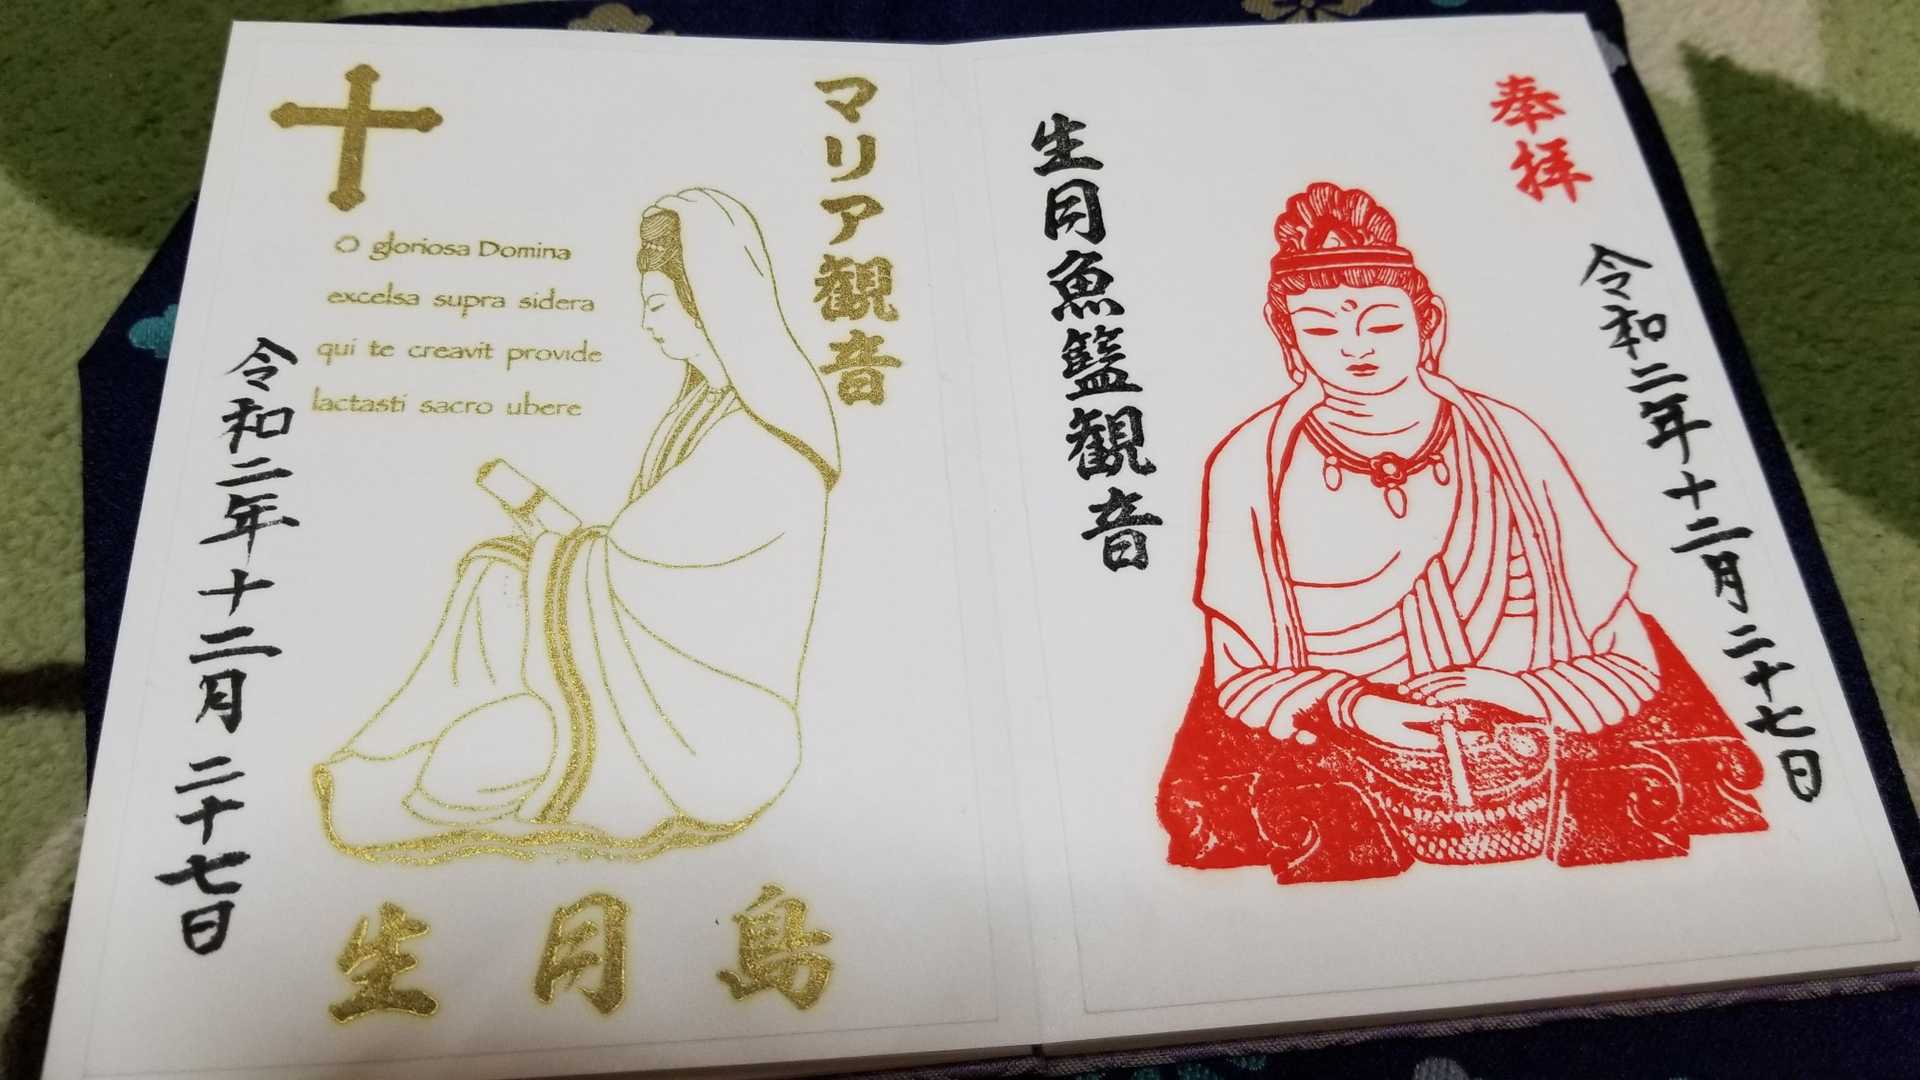 奉拝
令和二年十二月二十七日
生月魚籃観音
マリア観音
O gloriosa Domina
excelsa supra sidera
qui te creavit provide
lactasti sacro ubere
令和二年十二月二十七日
生月島